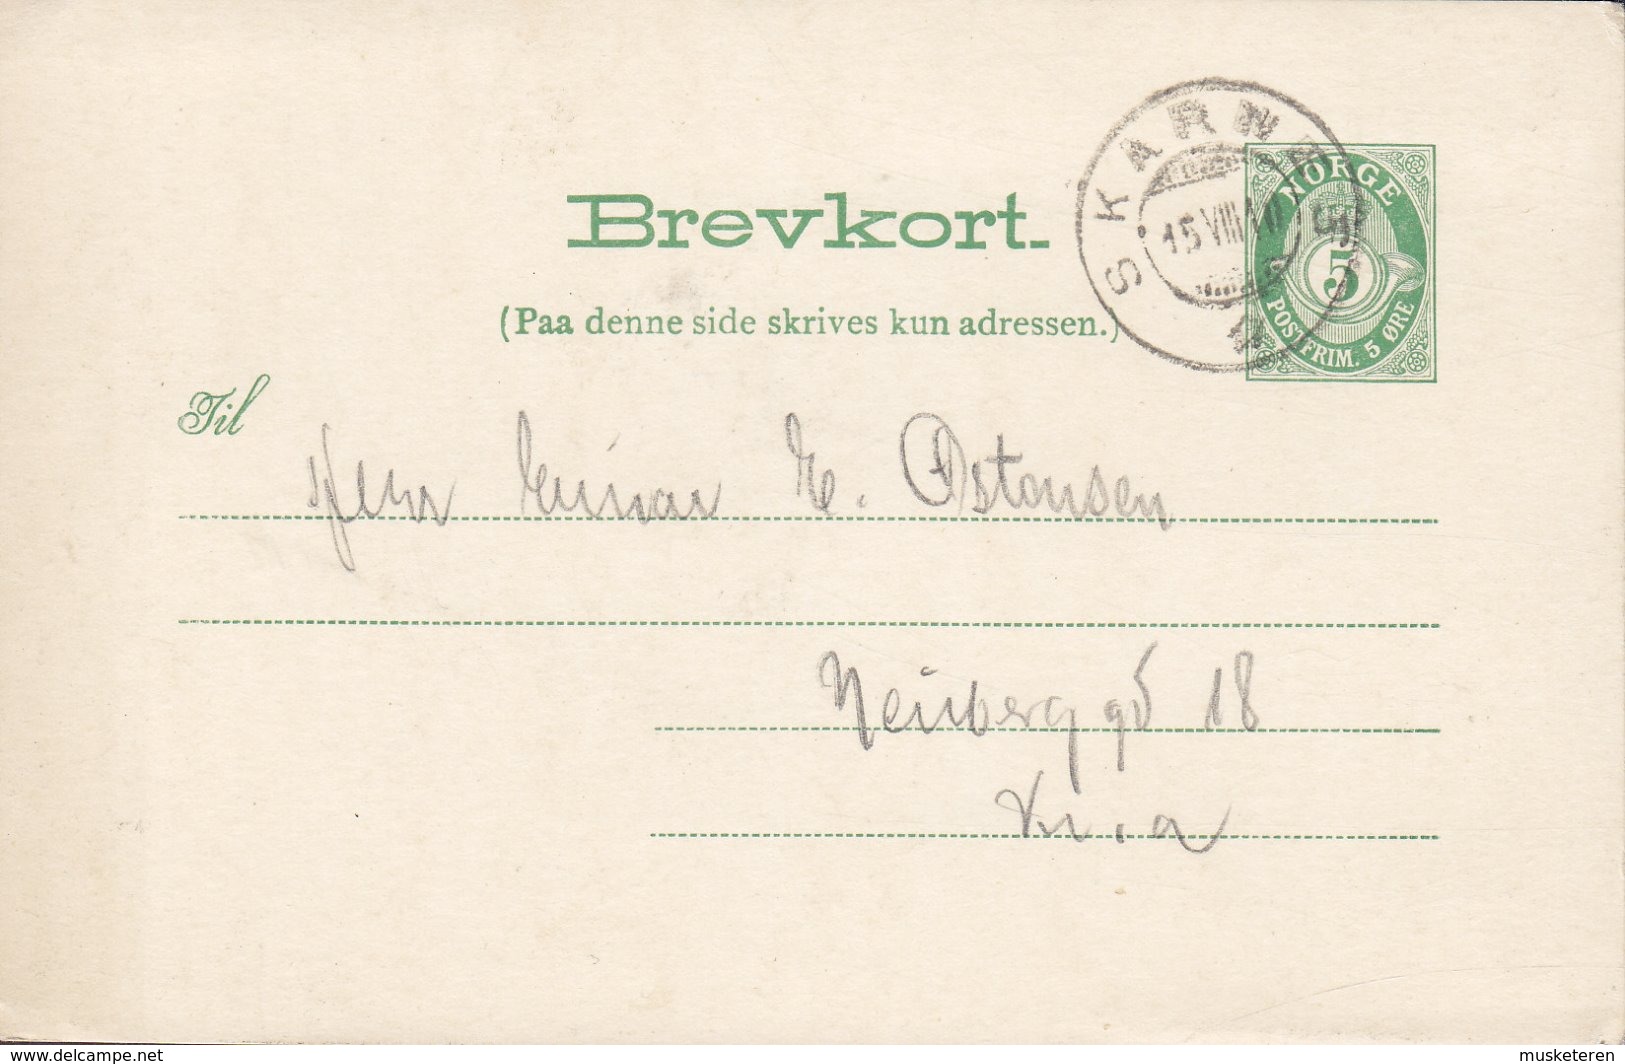 Brevkort.
SKARNES
15 VIII
NORGE
5
POSTFRIM. 5 ØRE
(Paa denne side skrives kun adressen.)
Til
Herr Einar E. Ostensen
Neuberggd 18
Kr.a
delcampe.net
musketeren